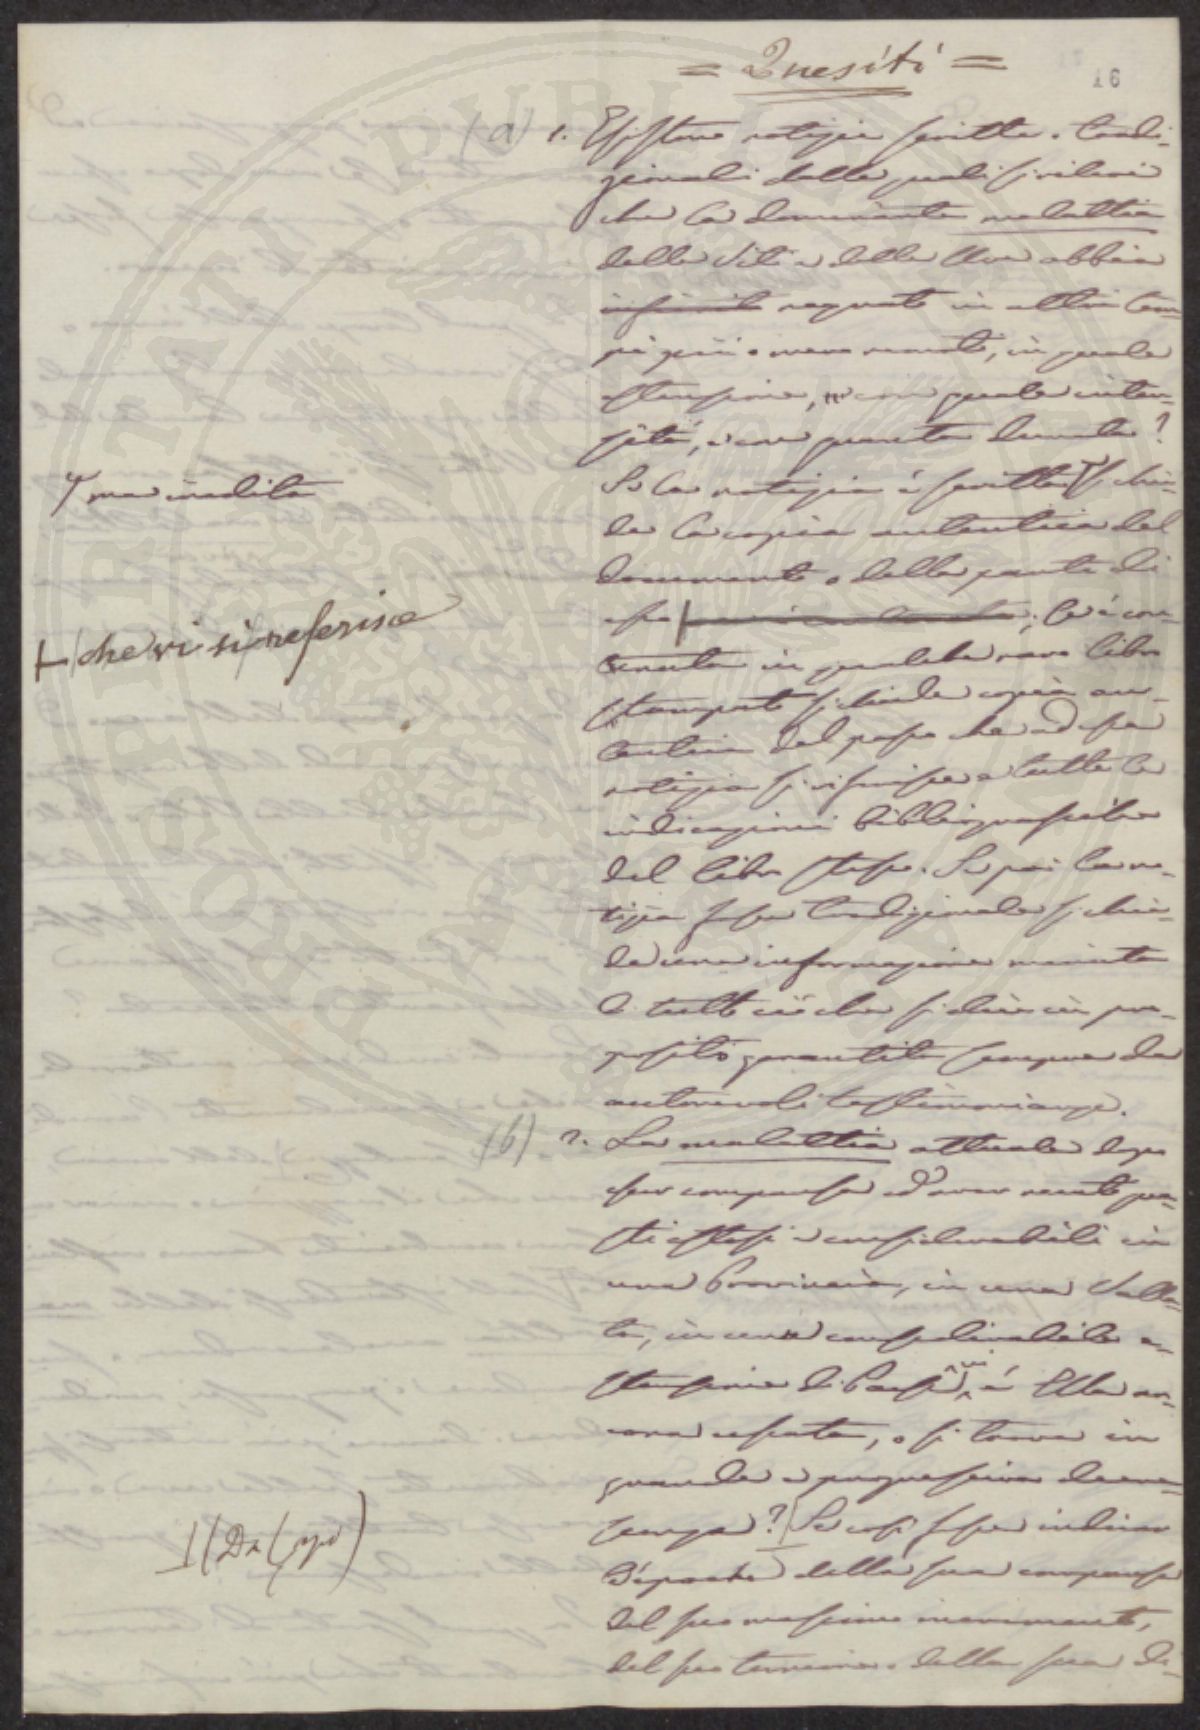 = Quesiti =
16
(a) 1. Esistono notizie scritte o tradi-
zionali dalle quali si rilevi
che la dominante malattia
della Viti e delle Uve abbia
regnato in altri tem-
pi più o meno remoti, in quale
estensione, con quale inten-
sità, e con quanta durata?
Se la notizia è scritta si chie-
ma inedita
de la copia autentica del
documento o della parte di
esso ; se è con-
che vi si riferisce
tenuta in qualche raro libro
stampato si chiede copia au-
tentica del passo che ad essa
notizia si riferisce e tutte le
indicazioni bibliografiche
del libro stesso. Se poi la no-
tizia fosse tradizionale si chie-
de una informazione minuta
di tutto ciò che si dice in pro-
posito garantita sempre da
autorevoli testimonianze.
(b) 2. La malattia attuale dopo
esser comparsa ed aver recato gua-
sti estesi e considerabili in
una Provincia, in una Valla-
ta, in una considerabile e-
stensione di Paese, vi è Ella an-
cora cessata, o si trova in
grande e progressiva decre-
scenza? Se così fosse indicar
(Da Capo)
l'epoca della sua comparsa
del suo massimo incremento,
del suo termine o della sua de-